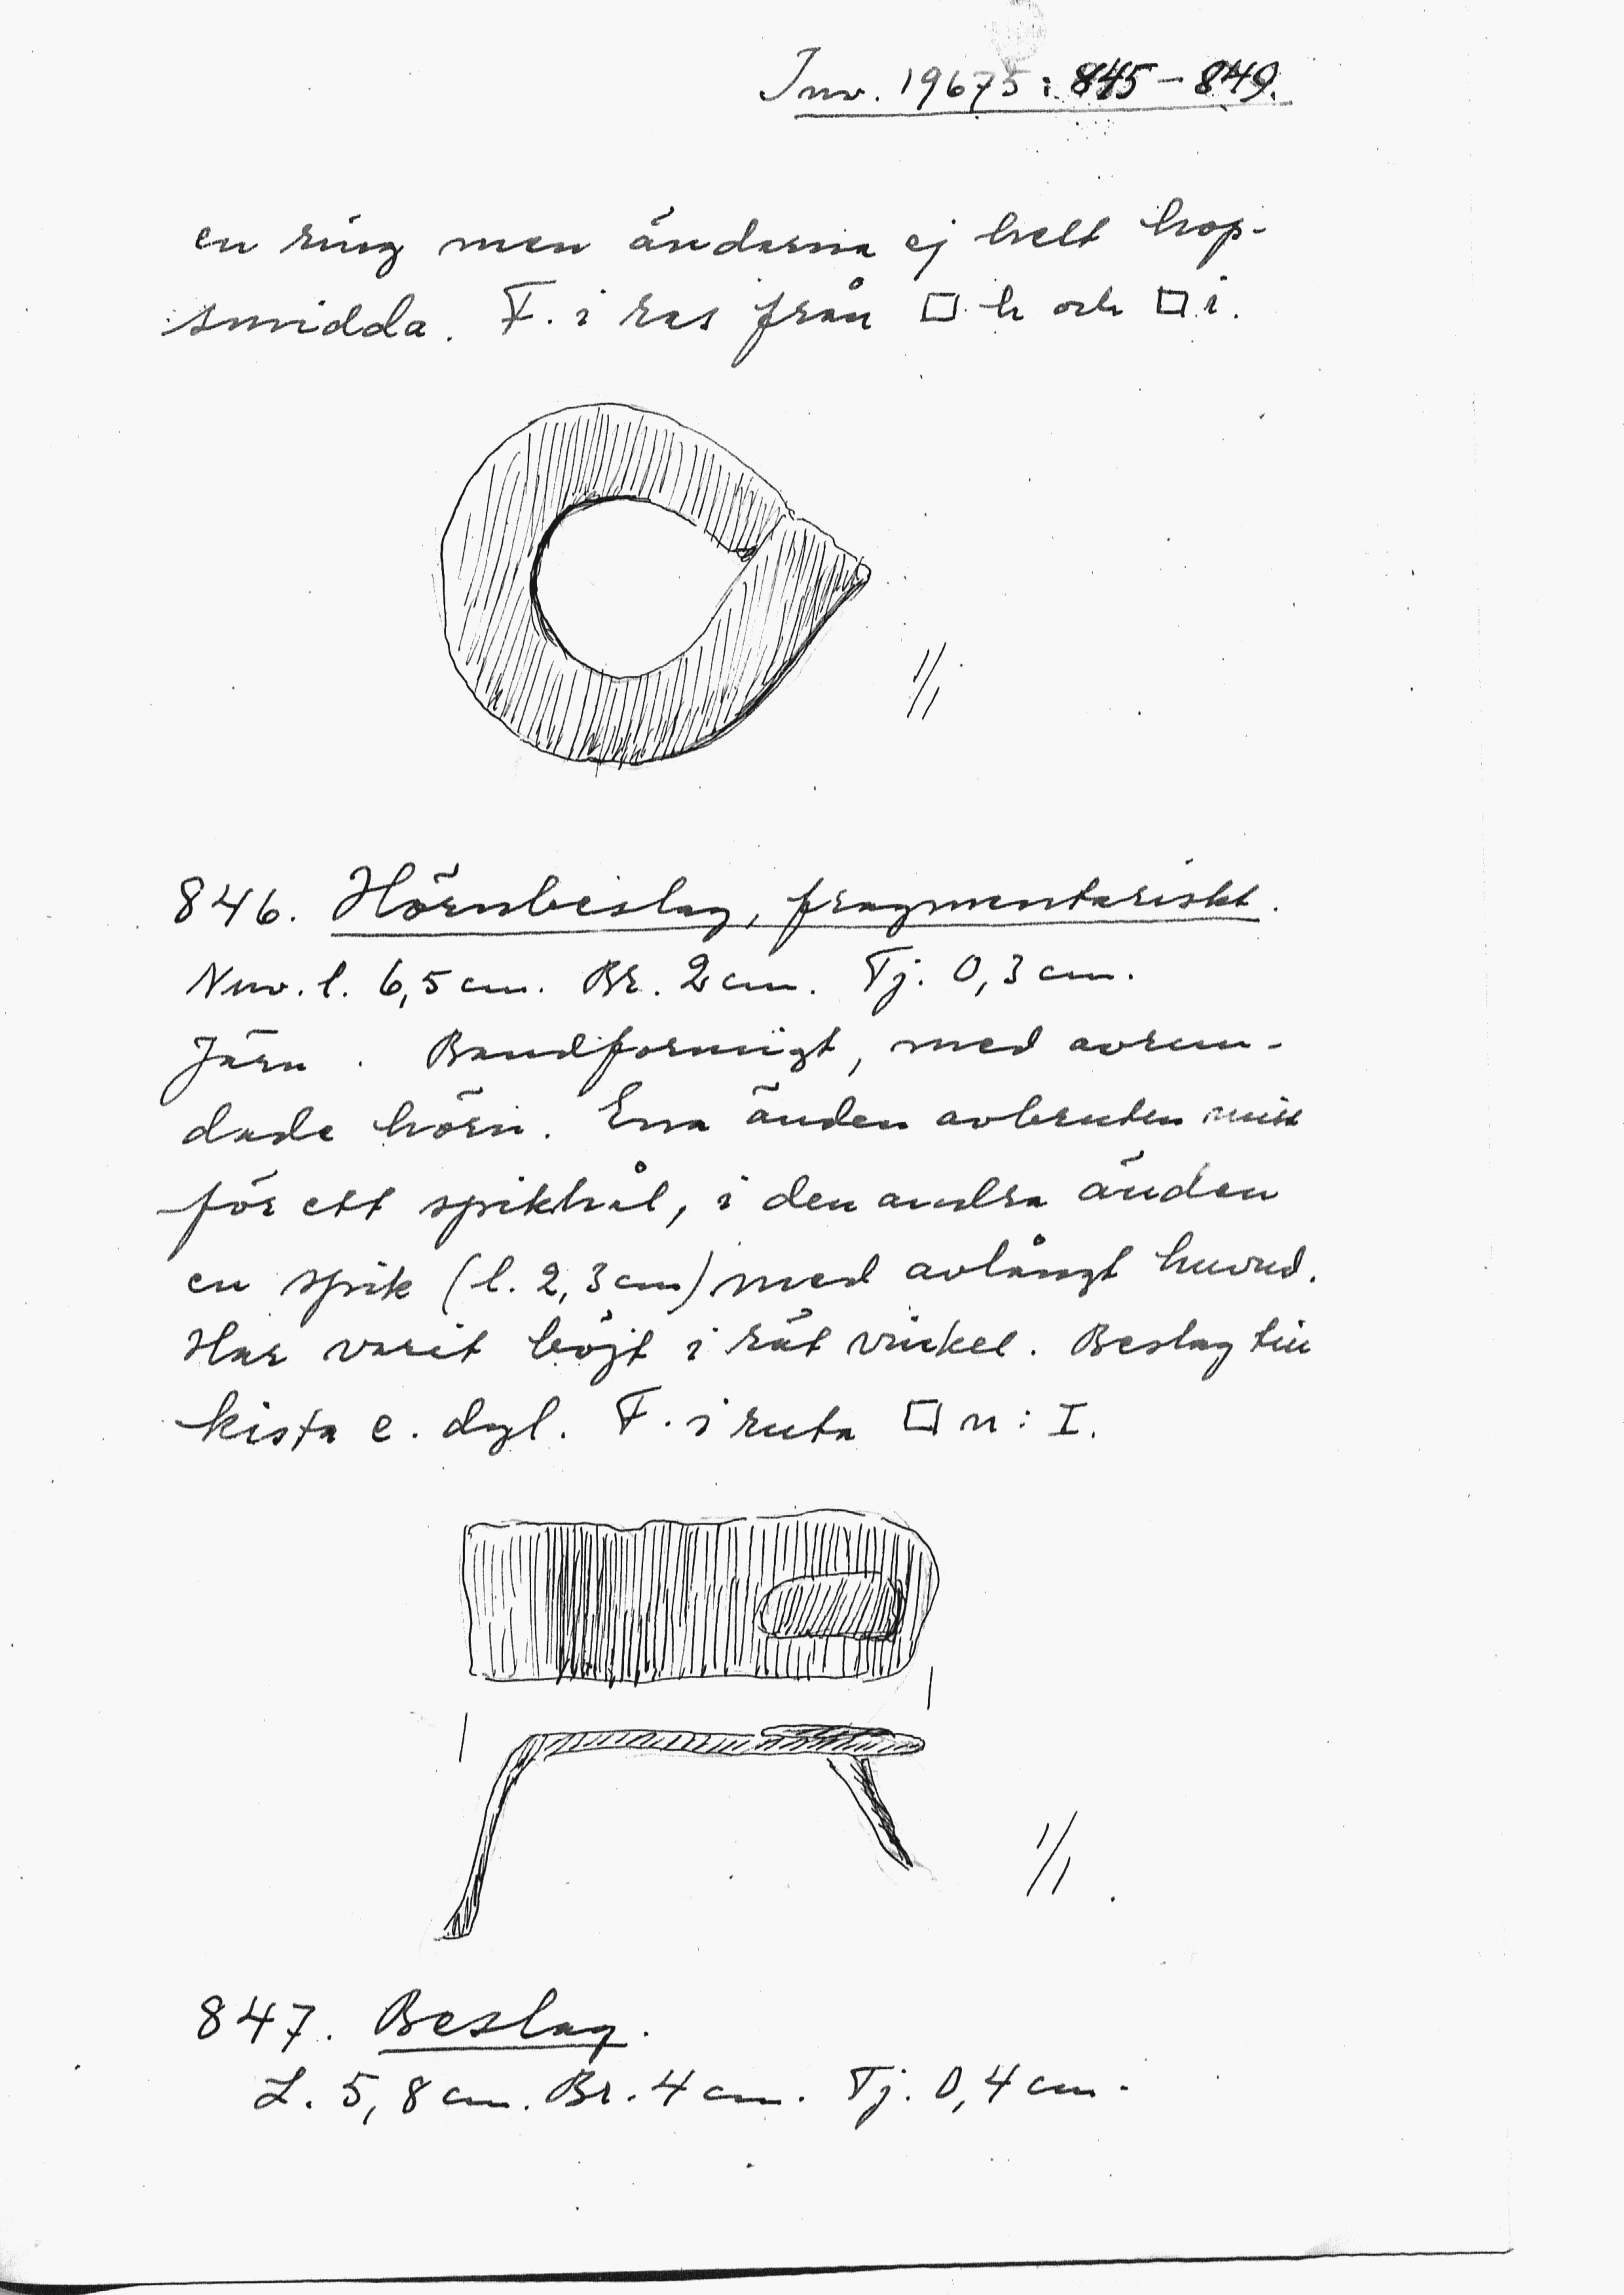 Inv. 19675: 845–849.
en ring men ändarna ej helt hop-
smidda. F. i ras från □ h och □ i.
1/1.
846. Hörnbeslag, fragmentariskt.
Nuv. l. 6,5 cm. Br. 2 cm. Tj. 0,3 cm.
Järn. Bandformigt, med avrun-
dade hörn. Ena änden avbruten mitt
för ett spikhål, i den andra änden
en spik (l. 2,3 cm) med avlångt huvud.
Har varit böjt i rät vinkel. Beslag till
kista e. dyl. F. i ruta □ n: I.
1/1.
847. Beslag.
L. 5,8 cm. Br. 4 cm. Tj. 0,4 cm.